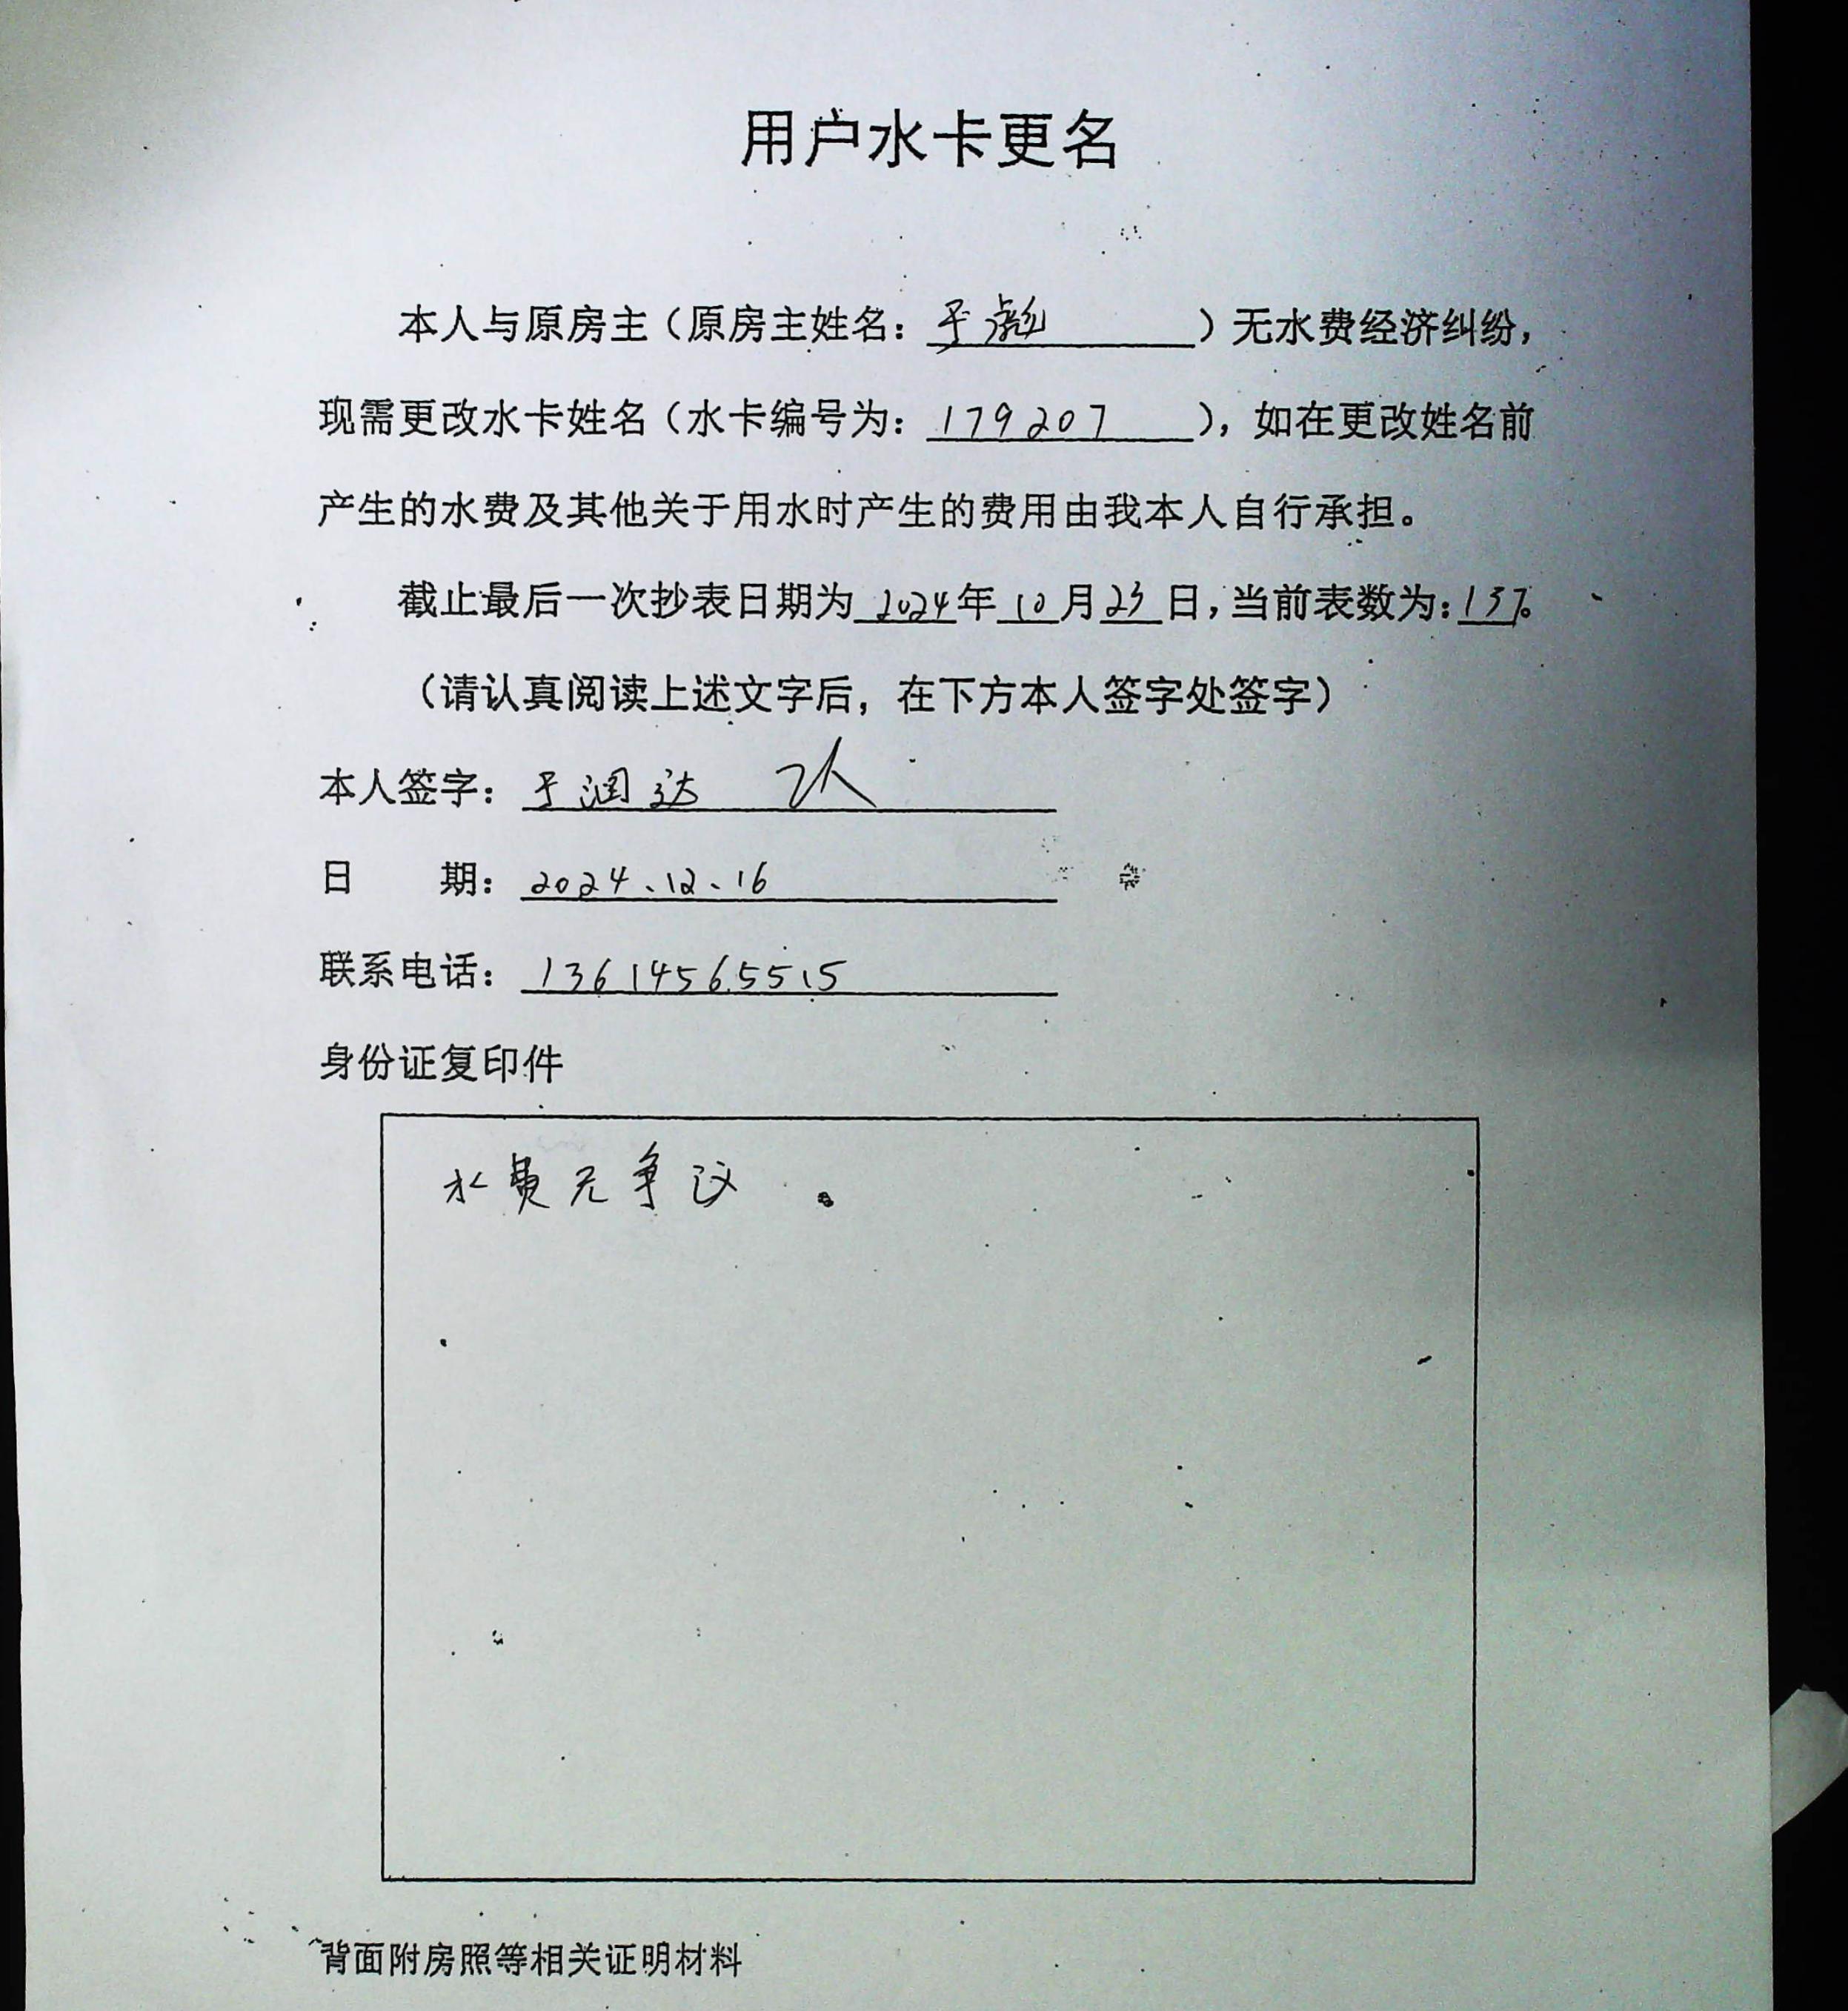 用户水卡更名
本人与原房主（原房主姓名：于彪）无水费经济纠纷，
现需更改水卡姓名（水卡编号为：179207），如在更改姓名前
产生的水费及其他关于用水时产生的费用由我本人自行承担。
截止最后一次抄表日期为2024年10月23日，当前表数为：137。
（请认真阅读上述文字后，在下方本人签字处签字）
本人签字：于润达
日 期：2024、12、16
联系电话：13614565515
身份证复印件
水费无争议。
背面附房照等相关证明材料